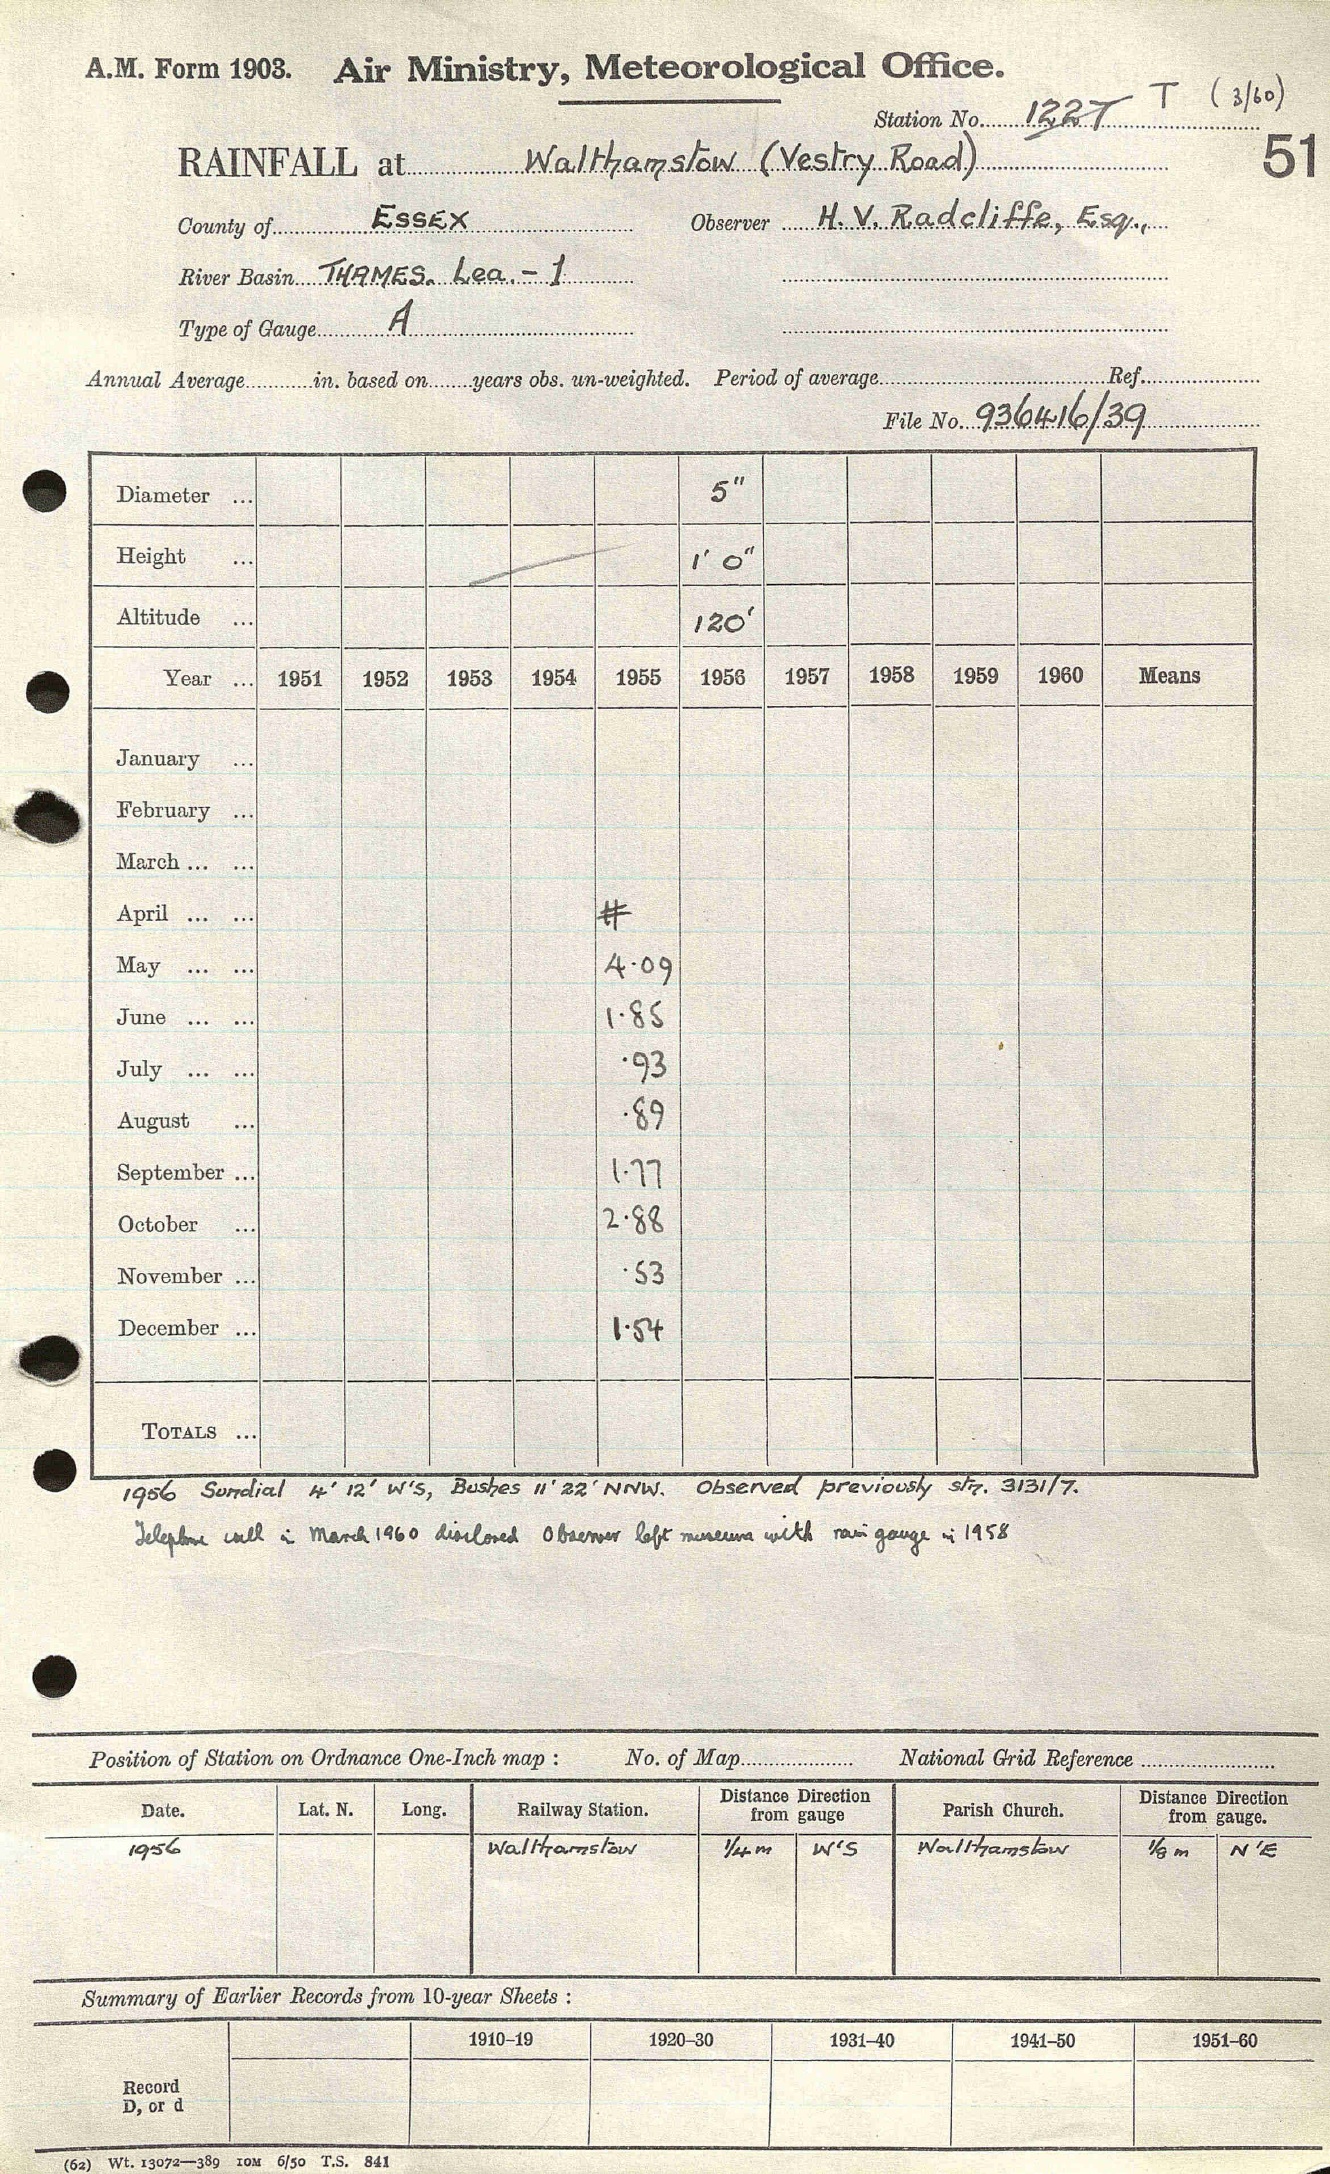 A.M. Form 1903. Air Ministry, Meteorological Office.
Station No. 1227 T (3/60)
51
RAINFALL at Walthamstow (Vestry Road)
County of Essex Observer H. V. Radcliffe, Esq.,
River Basin THAMES. Lea. - 1
Type of Gauge A
Annual Average in. based on years obs. un-weighted. Period of average Ref.
File No. 936416/39
Diameter ... 5"
Height ... 1' 0"
Altitude ... 120'
Year ... 1951 1952 1953 1954 1955 1956 1957 1958 1959 1960 Means
January ...
February ...
March ... ...
April ... ... #
May ... ... 4.09
June ... ... 1.85
July ... ... .93
August ... .89
September ... 1.77
October ... 2.88
November ... .53
December ... 1.54
TOTALS ...
1956 Sundial 4' 12' W'S, Bushes 11' 22' NNW. Observed previously stn. 3131/7.
Telephone call in March 1960 disclosed Observer left museum with rain gauge in 1958
Position of Station on Ordnance One-Inch map : No. of Map National Grid Reference
Date. Lat. N. Long. Railway Station. Distance Direction from gauge Parish Church. Distance Direction from gauge.
1956 Walthamstow 1/4 m W'S Walthamstow 1/8 m N'E
Summary of Earlier Records from 10-year Sheets :
1910-19 1920-30 1931-40 1941-50 1951-60
Record
D, or d
(62) Wt. 13072—389 10M 6/50 T.S. 841